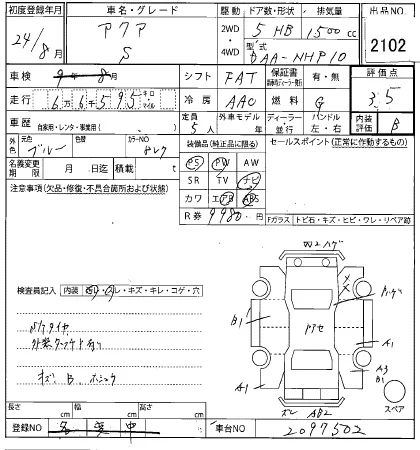 初度登録年月 車名・グレード 駆動 ドア数・形状 排気量 出品NO
24/8月 アクア S 2WD 4WD 5 HB 1500cc 2102
型式 DAA-NHP10
車検 9年8月 シフト FAT 保証書 有・無 評価点 3.5
走行 6万6千595 キロ マイル 冷房 AAC 燃料 G
車歴 自家用・レンタ・事業用( ) 定員 5人 外車モデル 年 ディーラー・並行 ハンドル 左・右 内装評価 B
外色 元色 ブルー 色替 カラーNO 8L7 装備品(純正品に限る) セールスポイント(正常に作動するもの)
名義変更期限 月 日迄 積載 t PS PW AW
注意事項(欠品・修復・不具合箇所および状態) SR TV ナビ
カワ エアB ABS
R券 9980円
Fガラス トビ石・キズ・ヒビ・ワレ・リペア跡
検査員記入 内装
・キレ・コゲ・穴
タイヤ
キズ、B、
B1 A1 A3 B1 A1 AB2
スペア
長さ cm 幅 cm 高さ cm
登録NO 車台NO 2097502